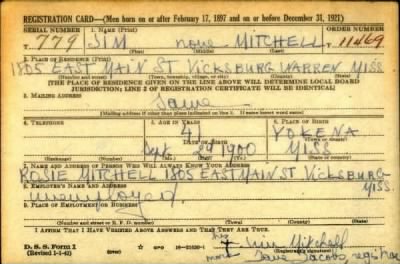 REGISTRATION CARD—(Men born on or after February 17, 1897 and on or before December 31, 1921)
SERIAL NUMBER 1. NAME (Print) ORDER NUMBER
T 779 SIM none MITCHELL T 11469
(First) (Middle) (Last)
2. PLACE OF RESIDENCE (Print)
1805 EAST MAIN ST VICKSBURG WARREN MISS
(Number and street) (Town, township, village, or city) (County) (State)
[THE PLACE OF RESIDENCE GIVEN ON THE LINE ABOVE WILL DETERMINE LOCAL BOARD
JURISDICTION; LINE 2 OF REGISTRATION CERTIFICATE WILL BE IDENTICAL]
3. MAILING ADDRESS
Same
[Mailing address if other than place indicated on line 2. If same insert word same]
4. TELEPHONE 5. AGE IN YEARS 6. PLACE OF BIRTH
41 YOKENA
DATE OF BIRTH (Town or county)
24 1900 MISS
(Exchange) (Number) (Mo.) (Day) (Yr.) (State or country)
7. NAME AND ADDRESS OF PERSON WHO WILL ALWAYS KNOW YOUR ADDRESS
ROSIE MITCHELL 1805 EAST MAIN ST VICKSBURG
MISS.
8. EMPLOYER'S NAME AND ADDRESS
unemployed
9. PLACE OF EMPLOYMENT OR BUSINESS
(Number and street or R. F. D. number) (Town) (County) (State)
I AFFIRM THAT I HAVE VERIFIED ABOVE ANSWERS AND THAT THEY ARE TRUE.
his
D. S. S. Form 1 GPO X Sim Mitchell
(Revised 1-1-42) mark Jacobs, registrar